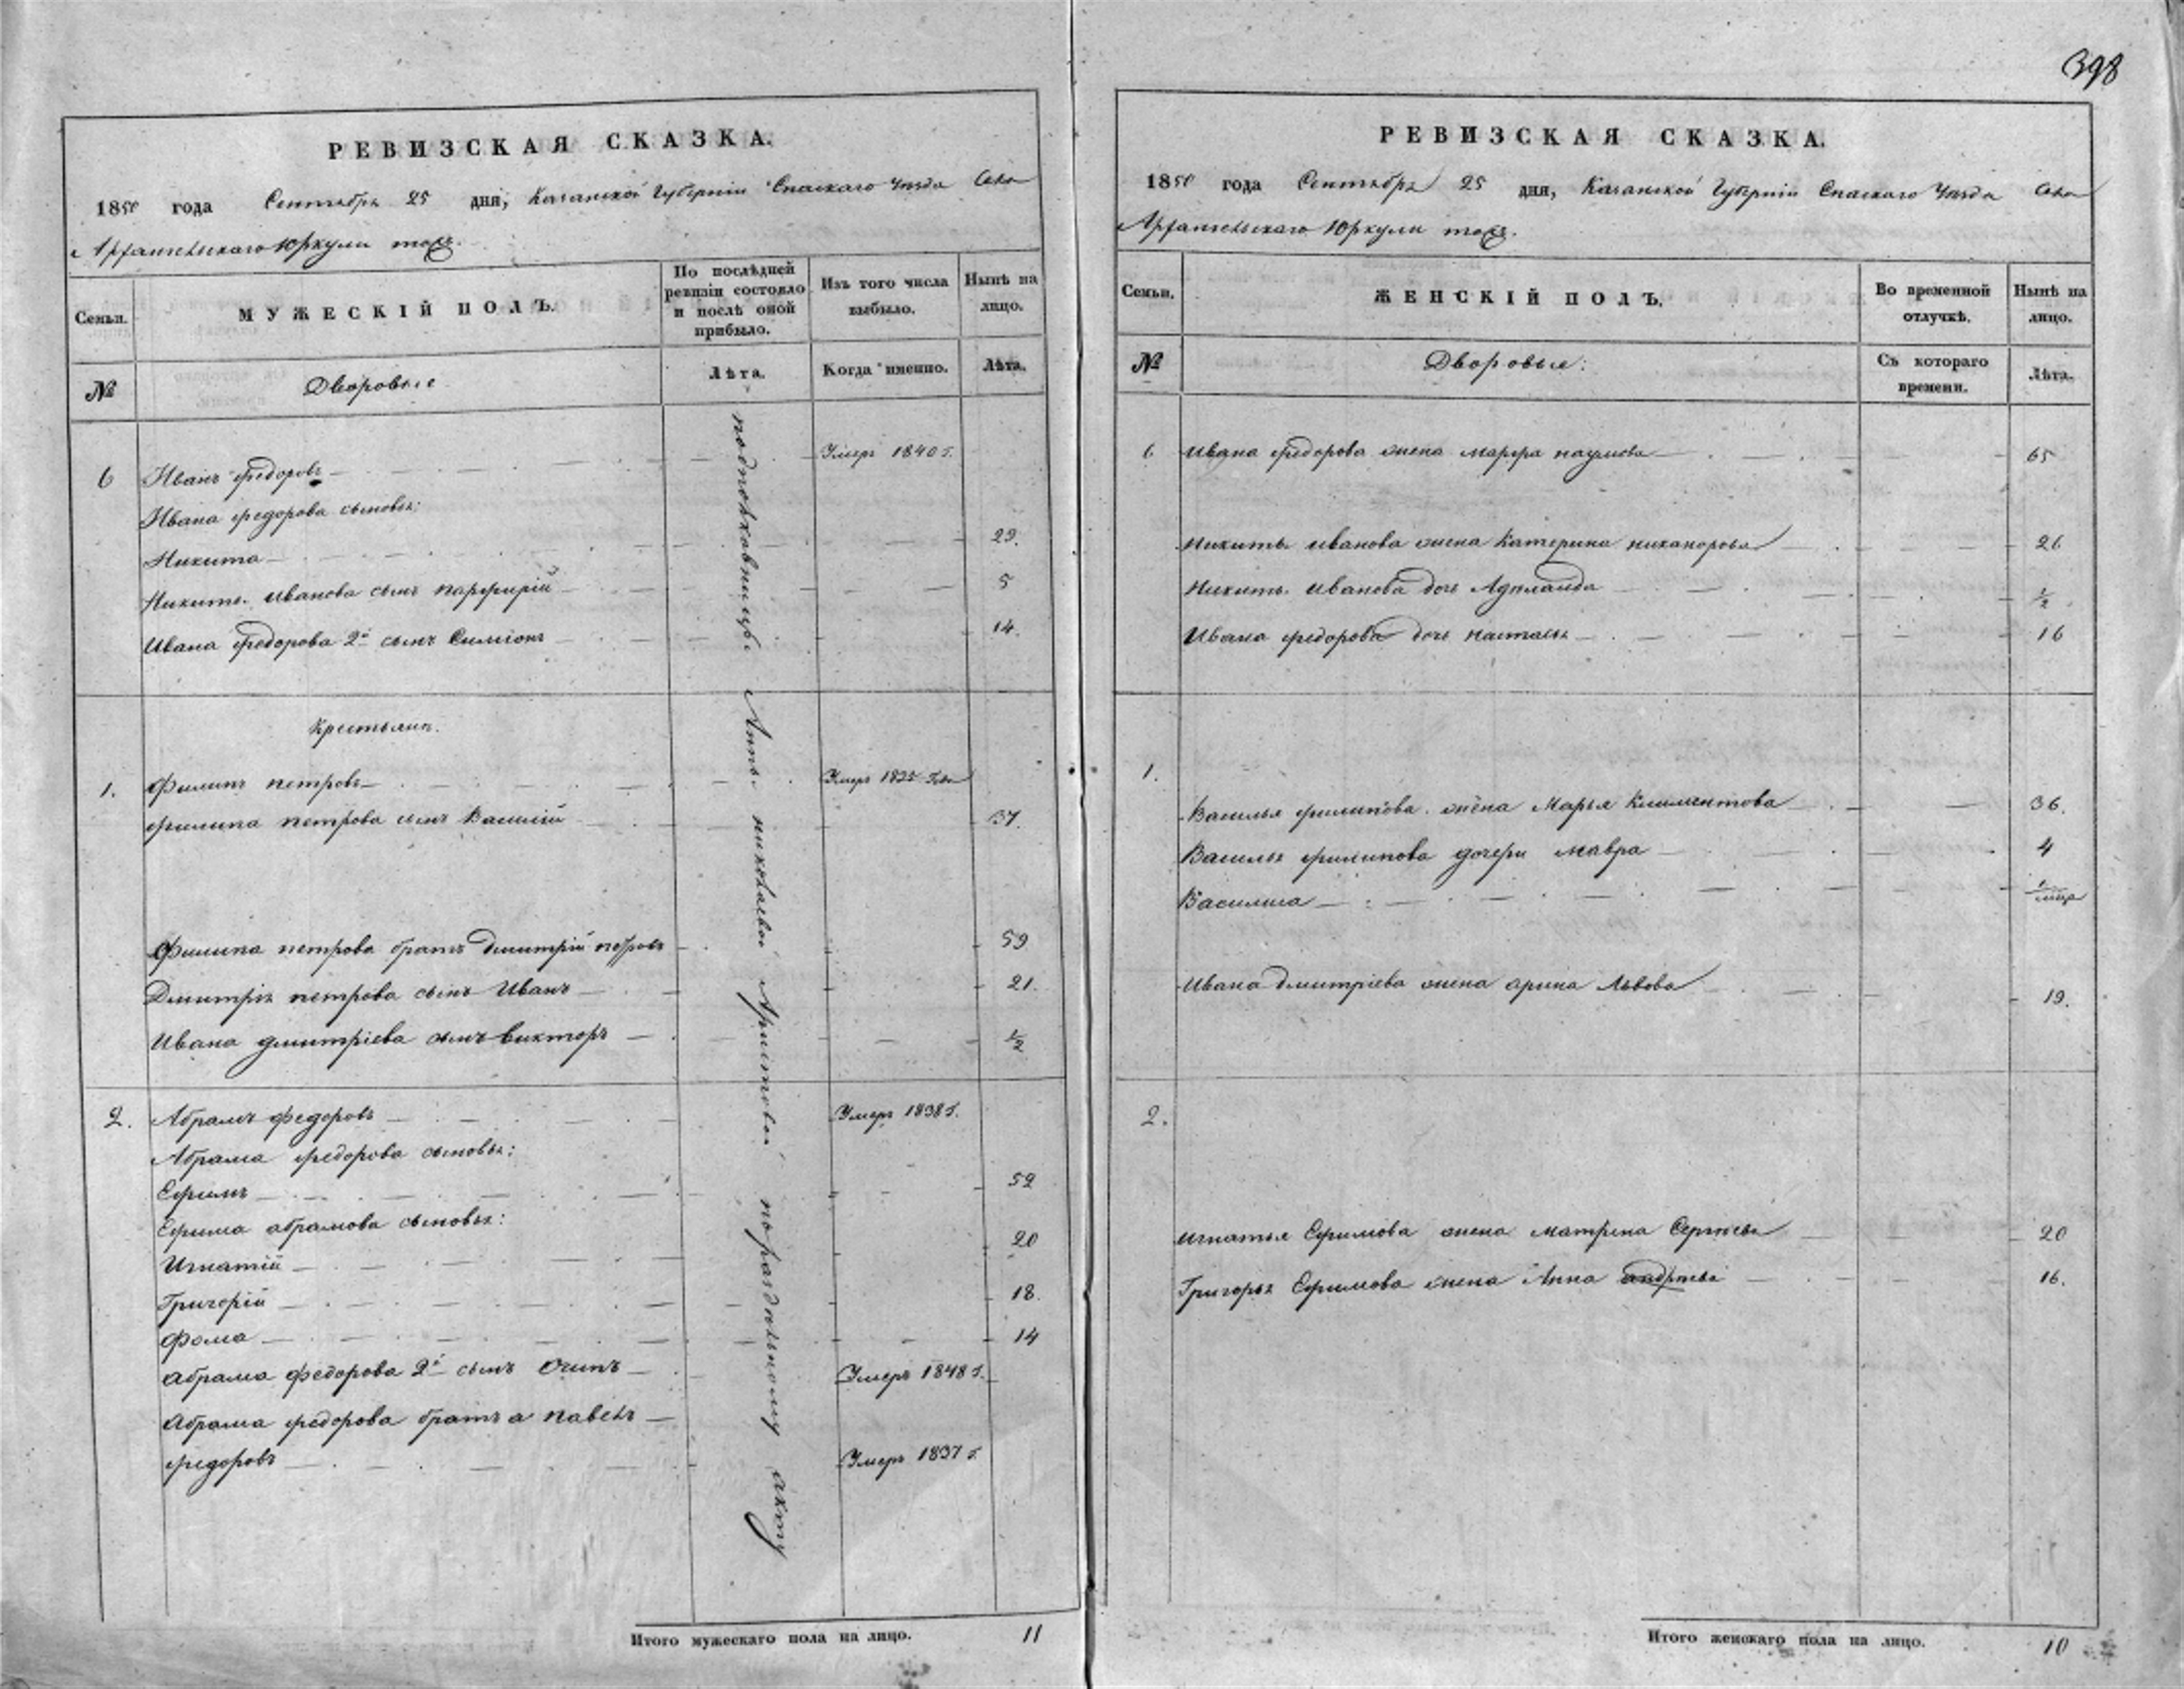 398
РЕВИЗСКАЯ СКАЗКА.
1850 года Сентября 25 дня, Казанской Губерніи Спаскаго Уѣзда Села
Архангельскаго Юркули тожъ.
Семьи.
МУЖЕСКІЙ ПОЛЪ.
По послѣдней ревизіи состояло и послѣ оной прибыло.
Изъ того числа выбыло.
Нынѣ на лицо.
№
Дворовые
Лѣта.
Когда именно.
Лѣта.
6 Иванъ Федоровъ Умеръ 1840 г.
Ивана Федорова сыновья:
Никита 29.
Никиты Иванова сынъ Парфирій 5
Ивана Федорова 2й сынъ Симіонъ 14.
Крестьяне.
1. Филипъ Петровъ Умеръ
Филипа Петрова сынъ Василій 37.
Филипа Петрова братъ Дмитрій Петровъ 59
Дмитрія Петрова сынъ Иванъ 21.
Ивана Дмитріева сынъ Викторъ ½
2. Абрамъ Федоровъ Умеръ 1838 г.
Абрама Федорова сыновья:
Ефимъ 52
Ефима Абрамова сыновья:
Игнатій 20
Григорій 18.
Фома 14
Абрама Федорова 2й сынъ Осипъ Умеръ 1848 г.
Абрама Федорова братъ а Павелъ
Федоровъ Умеръ 1837 г.
подполковницы Анны Николаевой Аристовой по раздѣльному акту
Итого мужескаго пола на лицо. 11
РЕВИЗСКАЯ СКАЗКА.
1850 года Сентября 25 дня, Казанской Губерніи Спаскаго Уѣзда Села
Архангельскаго Юркули тожъ.
Семьи.
ЖЕНСКІЙ ПОЛЪ.
Во временной отлучкѣ.
Нынѣ на лицо.
№
Дворовые:
Съ котораго времени.
Лѣта.
6 Ивана Федорова жена Марфа Наумова 65
Никиты Иванова жена Катерина Никанорова 26
Никиты Иванова дочь ½
Ивана Федорова дочь Настасья 16
1.
Василья Филипова жена Марья Климентова 36.
Василья Филипова дочери Мавра 4
Василиса
Ивана Дмитріева жена Арина Львова 19.
2.
Игнатья Ефимова жена Матрена Сергѣева 20
Григорья Ефимова жена Анна Андрѣева 16.
Итого женскаго пола на лицо. 10